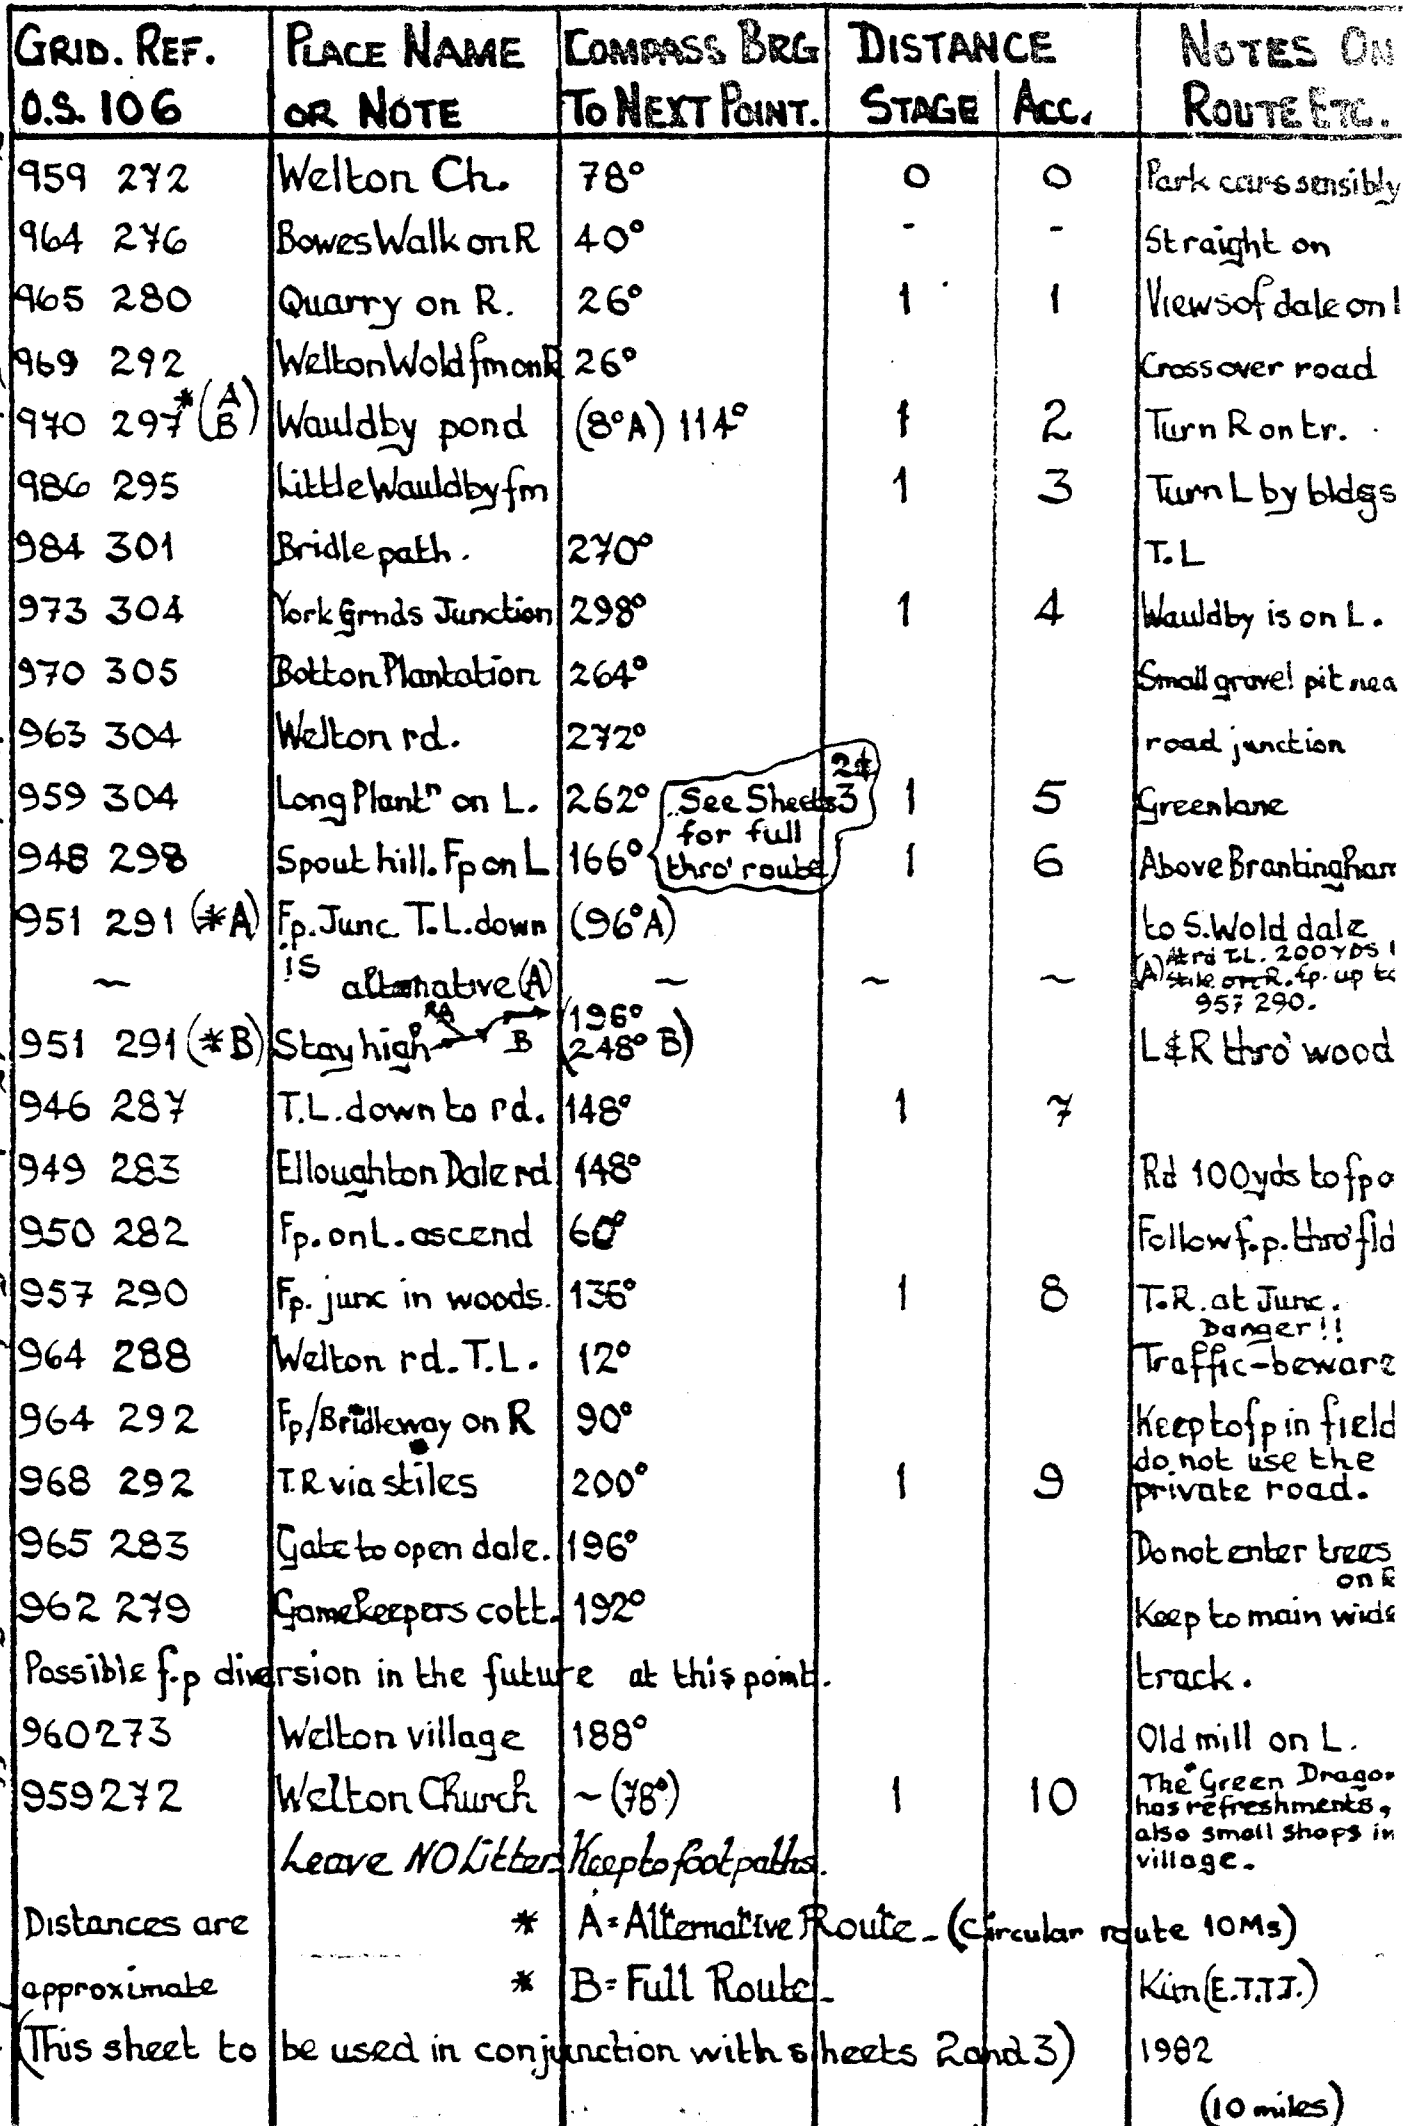 GRID. REF. PLACE NAME COMPASS BRG DISTANCE NOTES ON
O.S. 106 OR NOTE TO NEXT POINT. STAGE ACC. ROUTE ETC.
959 272 Welton Ch. 78° 0 0 Park cars sensibly
964 276 Bowes Walk on R 40° - - Straight on
965 280 Quarry on R. 26° 1 1 Views of dale on
969 292 Welton Wold fm on R 26° Cross over road
970 297 *(A B) Wauldby pond (8°A) 114° 1 2 Turn R on tr.
986 295 Little Wauldby fm 1 3 Turn L by bldgs
984 301 Bridle path. 270° T.L
973 304 York Grnds Junction 298° 1 4 Wauldby is on L.
970 305 Botton Plantation 264° Small gravel pit nea
963 304 Welton rd. 272° road junction
959 304 Long Plantn on L. 262° 1 5 Green lane
See Sheets 2 & 3
for full
thro' route
948 298 Spout hill. Fp on L 166° 1 6 Above Brantingham
951 291 (*A) Fp. Junc T.L. down (96°A) to S. Wold dale
~ is alternative (A) ~ ~ ~ (A) At rd T.L. 200 YDS
Stile on R. fp. up to
957 290.
RA
B
951 291 (*B) Stay high 196° (248° B) L & R thro' wood
946 287 T.L. down to rd. 148° 1 7
949 283 Elloughton Dale rd 148° Rd 100 yds to fp o
950 282 Fp. on L. ascend 60° Follow f.p. thro' fld
957 290 Fp. junc in woods. 136° 1 8 T.R. at Junc.
Danger!!
964 288 Welton rd. T.L. 12° Traffic - beware
964 292 Fp/Bridleway on R 90° Keep to fp in field
do not use the
968 292 T.R via stiles 200° 1 9 private road.
965 283 Gate to open dale. 196° Do not enter trees
on R
962 279 Gamekeepers cott. 192° Keep to main wide
Possible f.p diversion in the future at this point. track.
960 273 Welton village 188° Old mill on L.
959 272 Welton Church ~ (78°) 1 10 The "Green Dragon
has refreshments,
also small shops in
village.
Leave NO Litter. Keep to footpaths.
Distances are * A = Alternative Route - (Circular route 10 Ms)
approximate * B = Full Route - Kim (E.T.T.J.)
(This sheet to be used in conjunction with sheets 2 and 3) 1982
(10 miles)